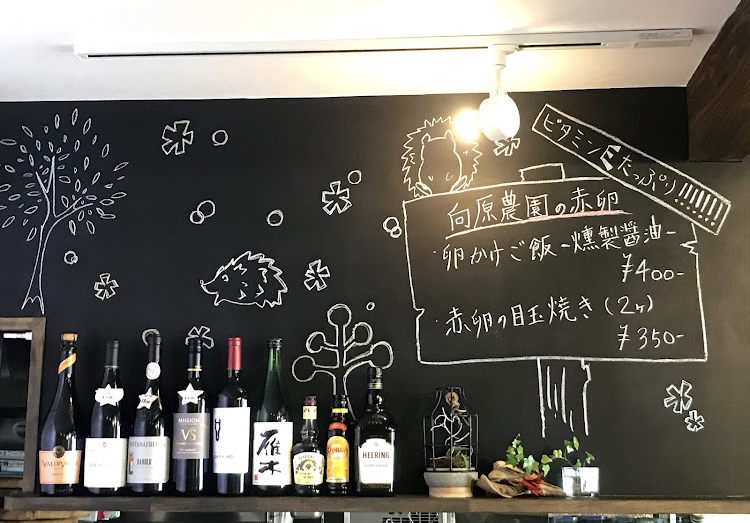 ビタミンEたっぷり!!!!!!!
向原農園の赤卵
・卵かけご飯-燻製醤油-
¥400-
・赤卵の目玉焼き(2ヶ)
¥350-
VALDIVIESO
BAROLO
MISSION
VS
雁木
Kahlúa
HEERING